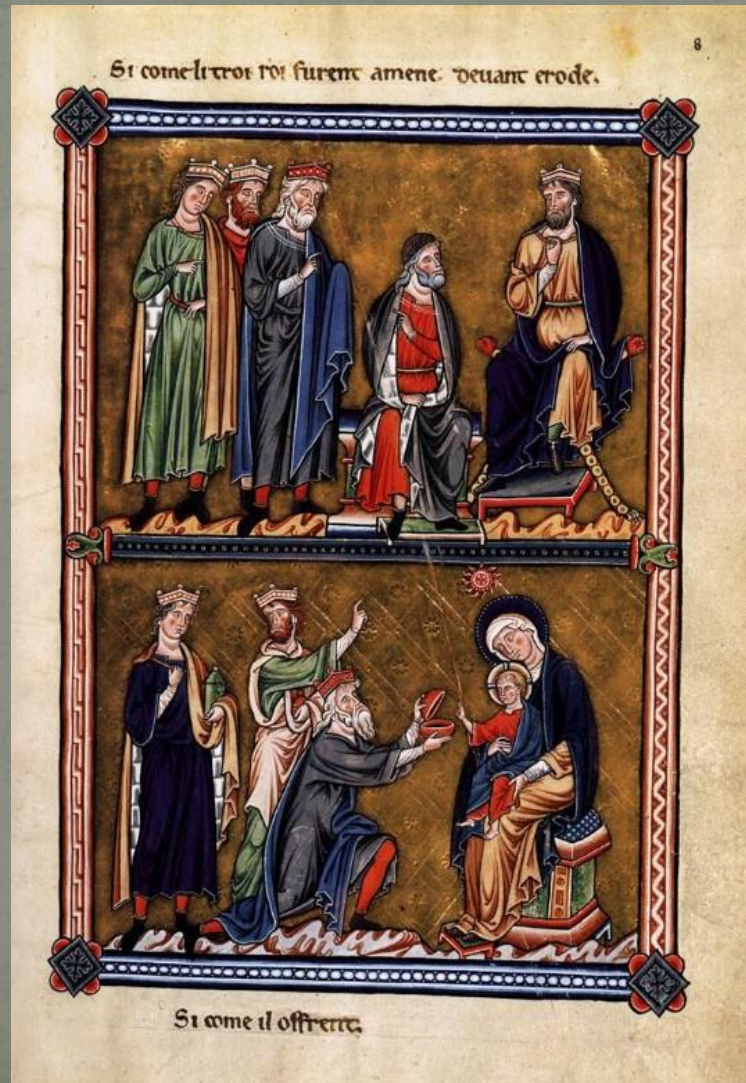 8
Si come li troi roi furent amene. deuant erode.
Si come il offrent.